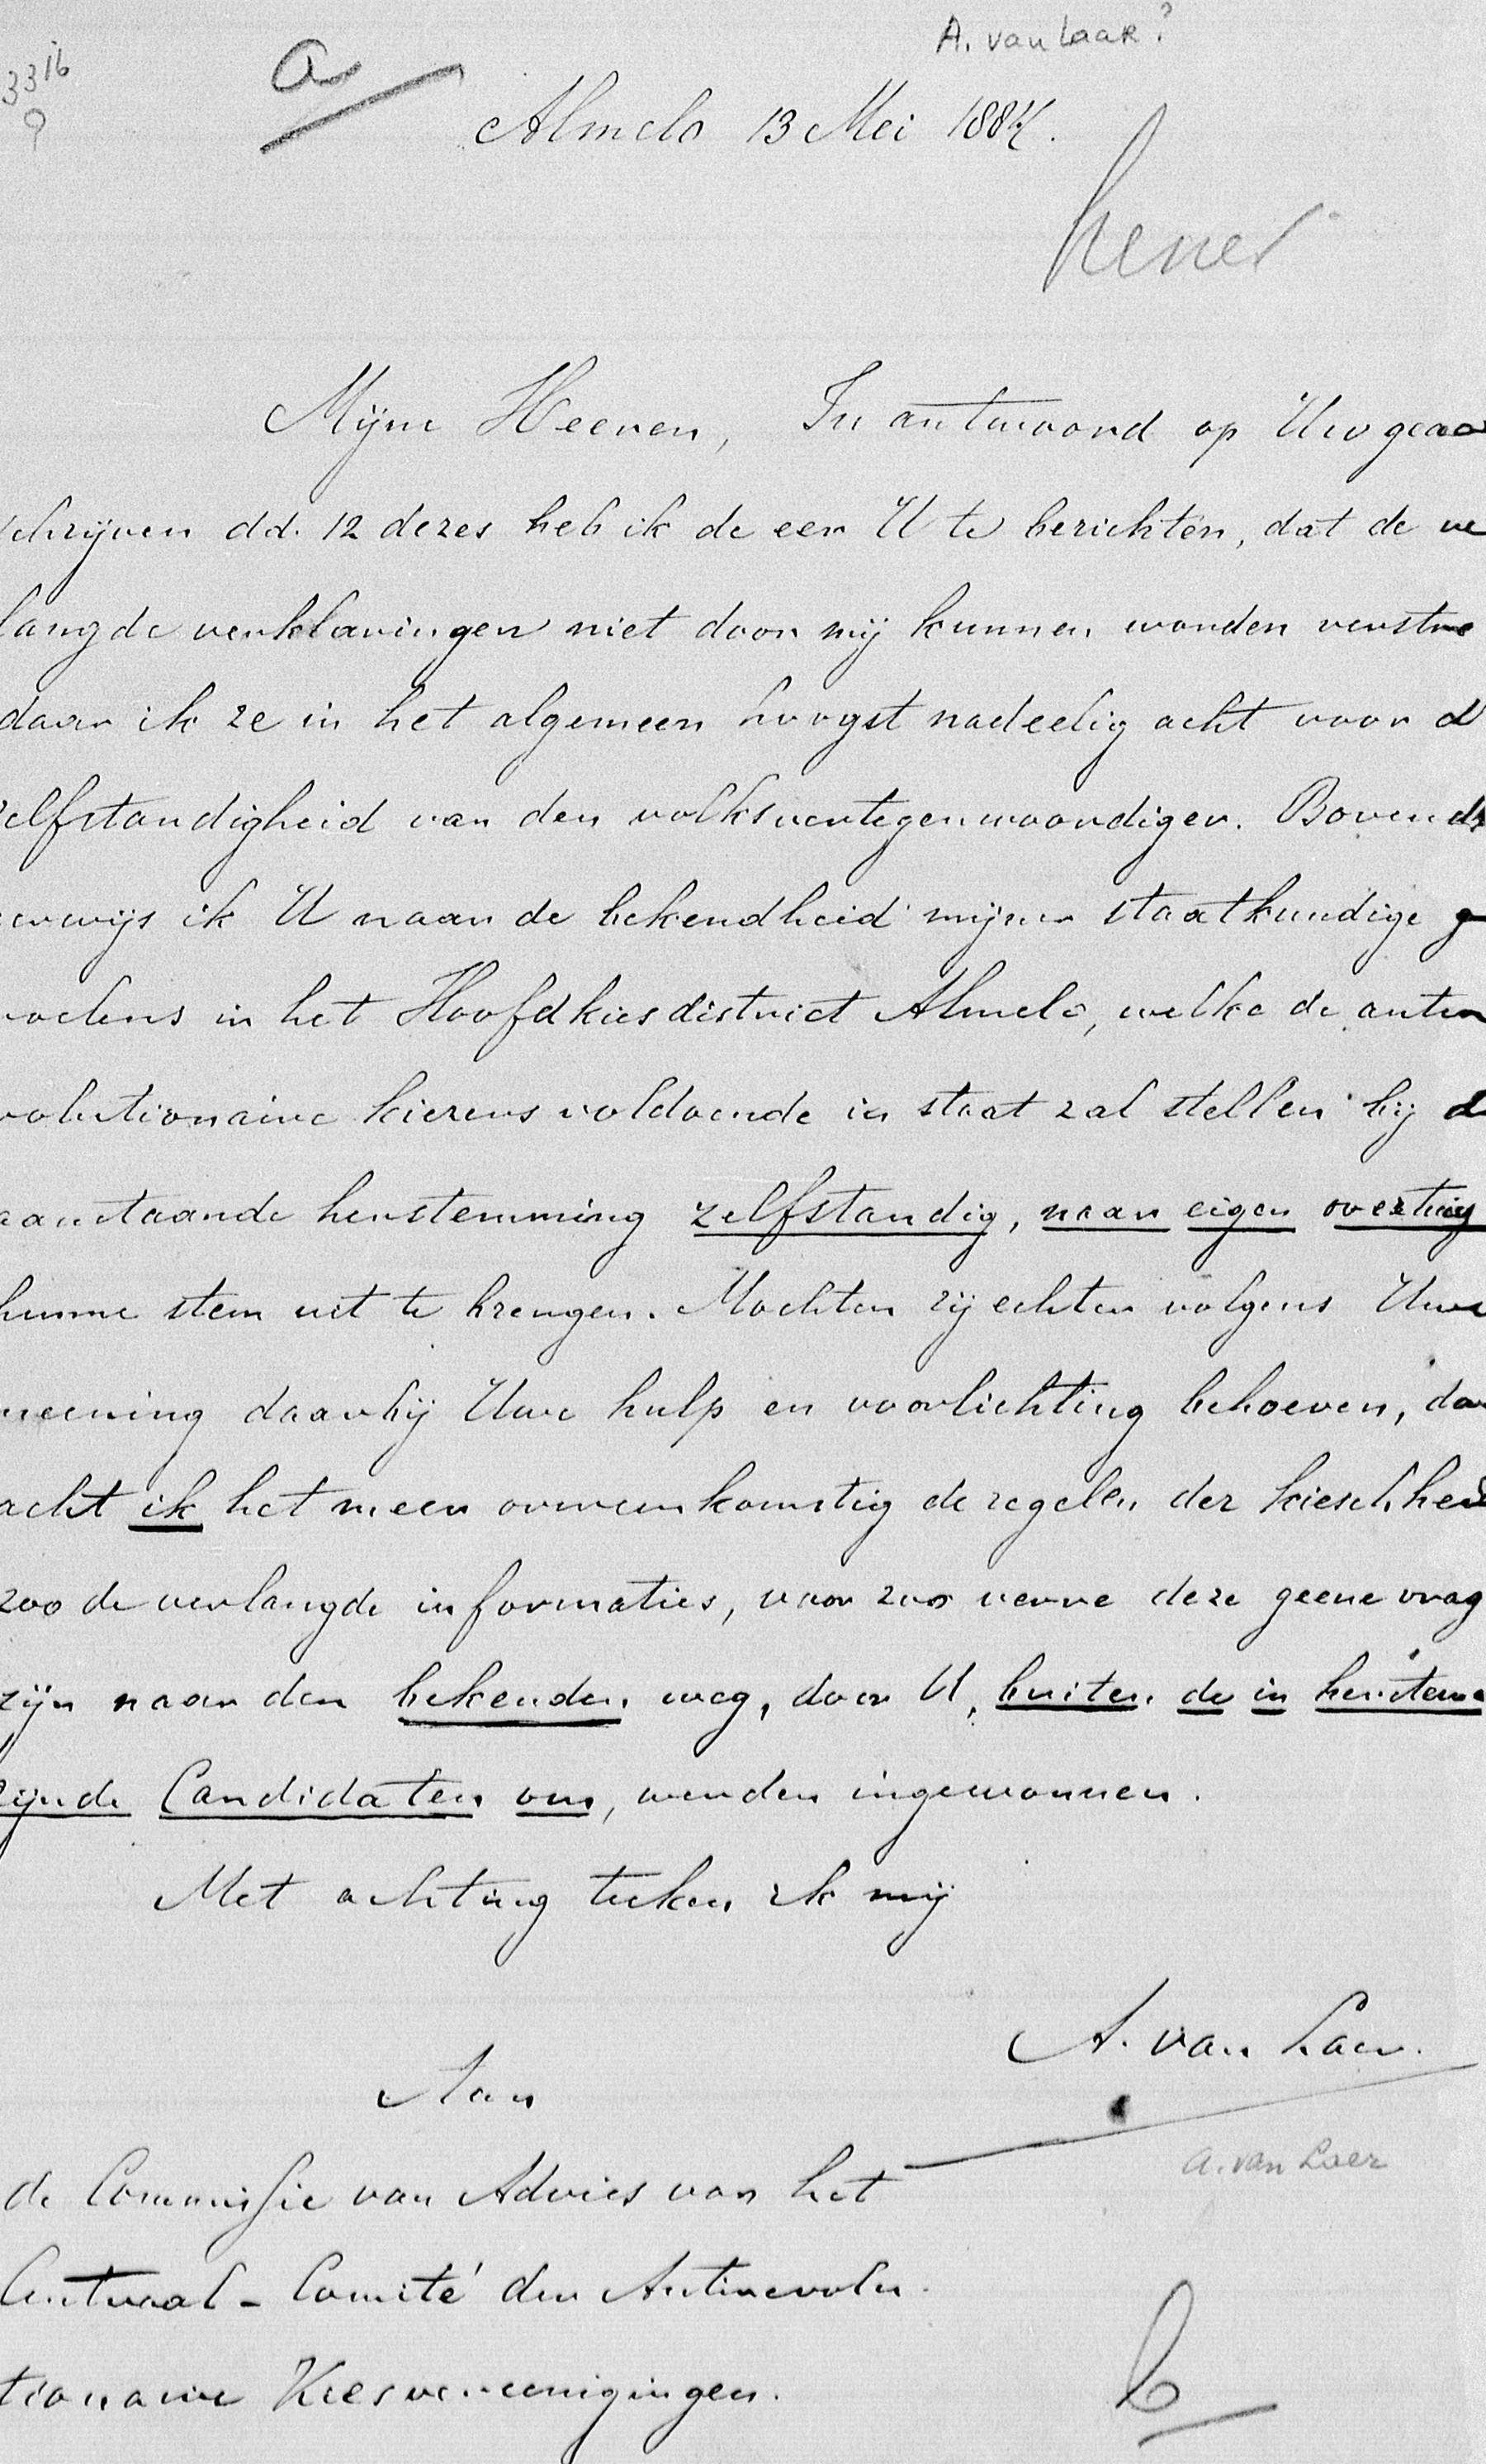 A. van Laar?
3316
?
a
Almelo 13 Mei 1884.
Mijne Heeren, In antwoord op Uw geac
schrijven dd. 12 dezes heb ik de eer U te berichten, dat de ve
langde verklaringen niet door mij kunnen worden verstre
daar ik ze in het algemeen hoogst nadeelig acht voor d
zelfstandigheid van den volksvertegenwoordiger. Bovend
verwijs ik U naar de bekendheid mijner staatkundige g
voelens in het Hoofdkiesdistrict Almelo, welke de antir
volutionaire kiezers voldoende in staat zal stellen bij d
aanstaande herstemming zelfstandig, naar eigen overtuig
hunne stem uit te brengen. Mochten zij echter volgens Uwe
meening daarbij Uwe hulp en voorlichting behoeven, da
acht ik het meer overeenkomstig de regelen der kieschheid
zoo de verlangde informaties, voor zoo verre deze geene vrag
zijn naar den bekenden weg, door U, buiten de in herstem
zijnde Candidaten om, werden ingewonnen.
Met achting teeken ik mij
A. van Laer.
Aan
a. van Laer
de Commissie van Advies van het
Centraal-Comité der Antirevolu-
tionaire Kiesvereenigingen.
b